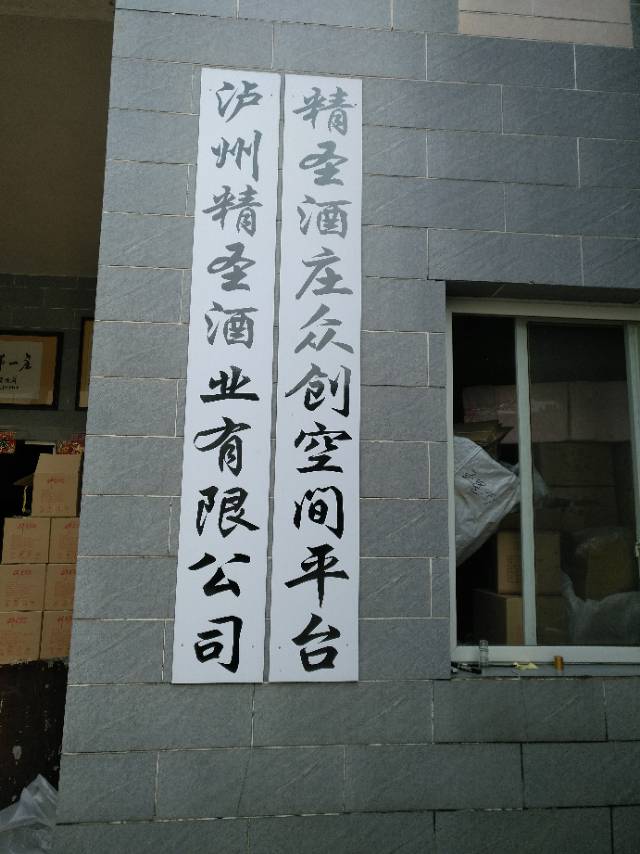 精圣酒庄众创空间平台
泸州精圣酒业有限公司